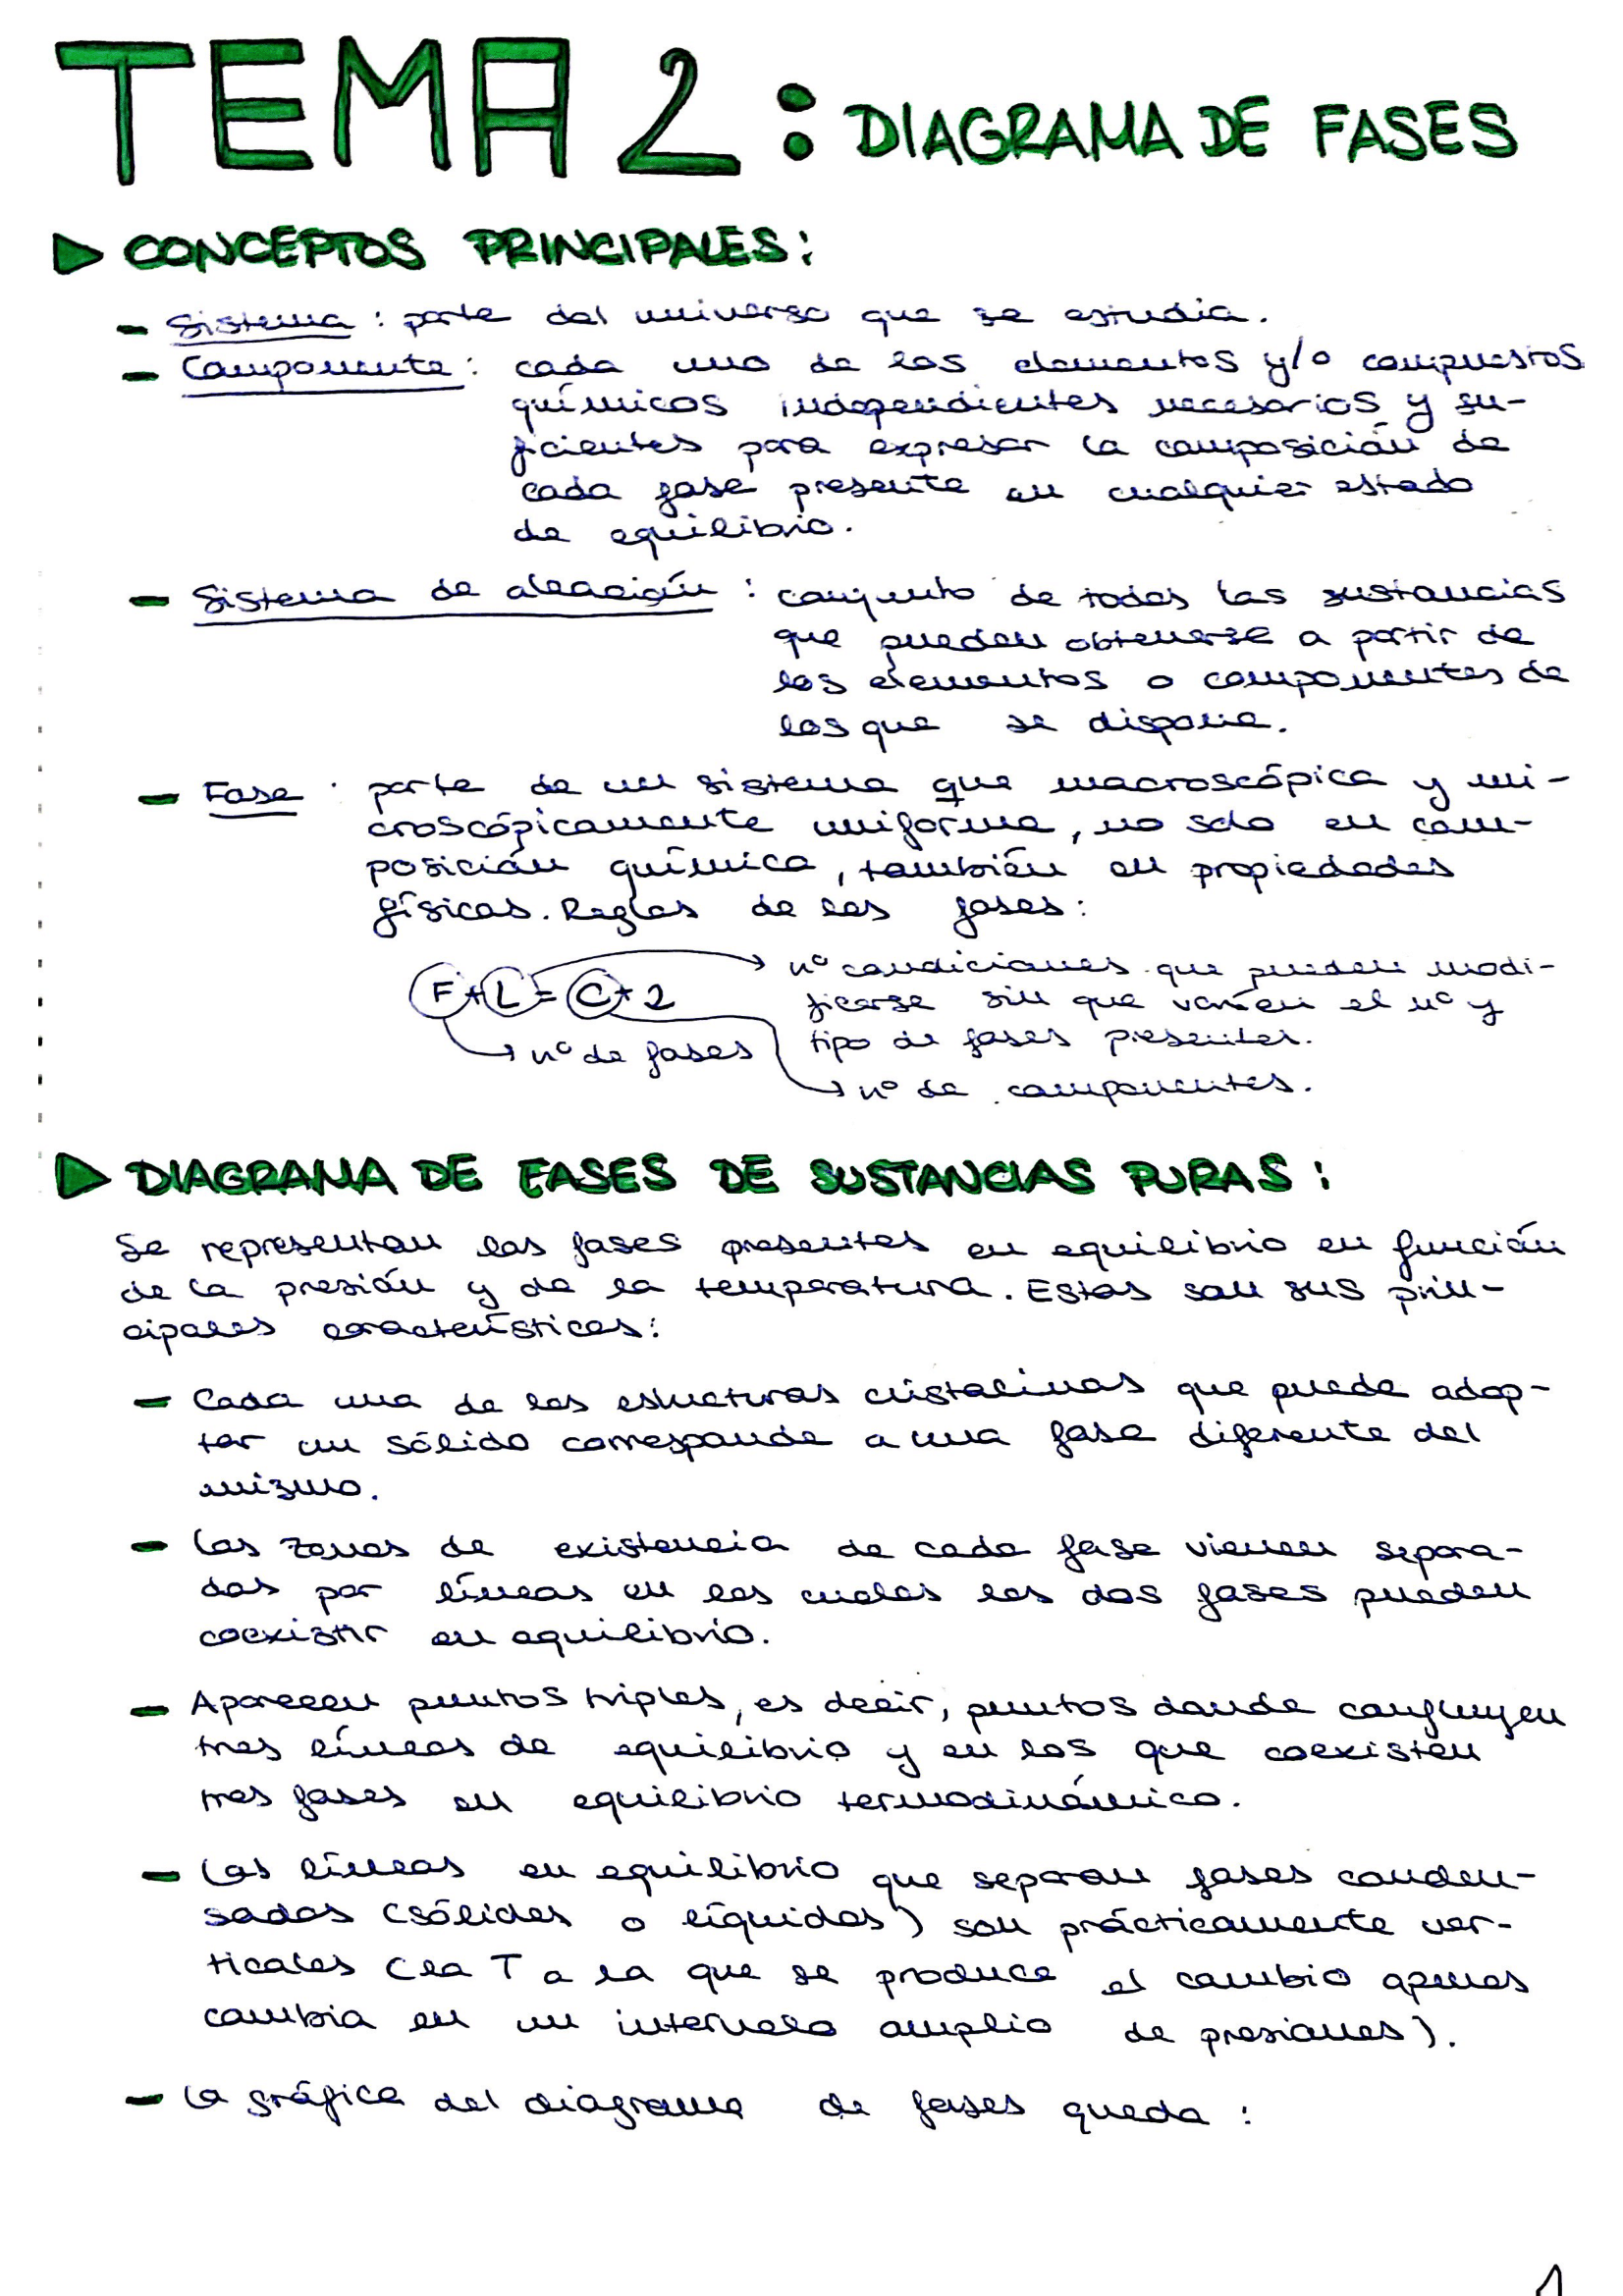 TEMA 2: DIAGRAMA DE FASES
CONCEPTOS PRINCIPALES:
- Sistema: parte del universo que se estudia.
- Componente: cada uno de los elementos y/o compuestos
químicos independientes necesarios y su-
ficientes para expresar la composición de
cada fase presente en cualquier estado
de equilibrio.
- Sistema de aleación: conjunto de todas las sustancias
que pueden obtenerse a partir de
los elementos o componentes de
los que se dispone.
- Fase: parte de un sistema que macroscópica y mi-
croscópicamente uniforme, no solo en com-
posición química, también en propiedades
físicas. Reglas de las fases:
F+L=C+2
nº condiciones que pueden modi-
ficarse sin que varíen el nº y
tipo de fases presentes.
nº de fases
nº de componentes.
DIAGRAMA DE FASES DE SUSTANCIAS PURAS:
Se representan las fases presentes en equilibrio en función
de la presión y de la temperatura. Estas son sus prin-
cipales características:
- Cada una de las estructuras cristalinas que puede adop-
tar un sólido corresponde a una fase diferente del
mismo.
- Las zonas de existencia de cada fase vienen separa-
das por líneas en las cuales las dos fases pueden
coexistir en equilibrio.
- Aparecen puntos triples, es decir, puntos donde confluyen
tres líneas de equilibrio y en los que coexisten
tres fases en equilibrio termodinámico.
- Las líneas en equilibrio que separan fases conden-
sadas (sólidas o líquidas) son prácticamente ver-
ticales (la T a la que se produce el cambio apenas
cambia en un intervalo amplio de presiones).
- La gráfica del diagrama de fases queda:
1